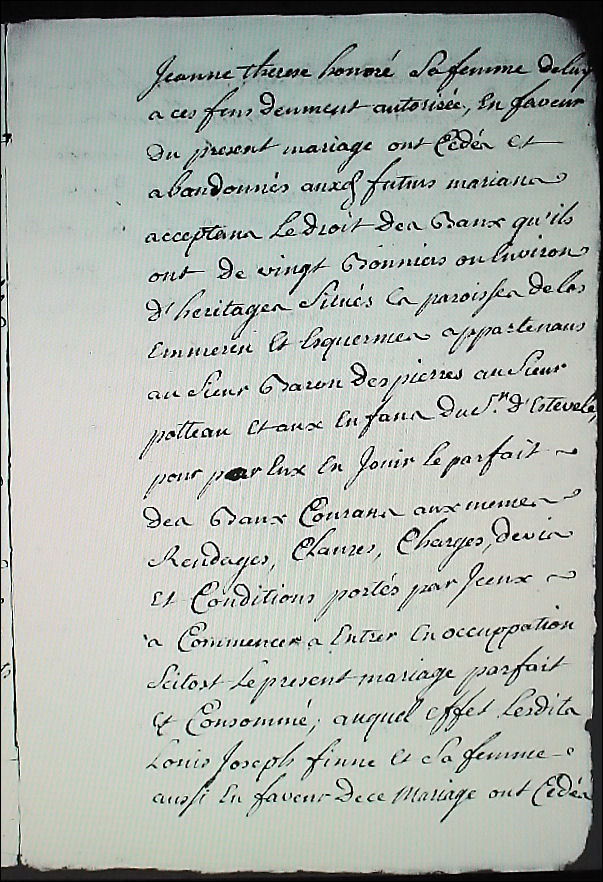 Jeanne therese honoré Sa femme de luy
a ces fins deument autorisée, En faveur
Du present mariage ont Cédés Et
abandonnés auxd futurs marians
acceptans Le droit des Baux qu'ils
ont de vingt Bonniers ou Environs
d'heritages Situés Es paroisses de los
Emmerin Et Esquermes appartenans
au Sieur Baron des pierres au Sieur
potteau Et aux Enfans du Sr. d'Estevele,
pour par Eux En Jouir le parfait
des Baux Courans aux memes
Rendages, Clauses, Charges, devis
Et Conditions portés par Jceux
a Commencer a Entrer En occuppation
Scitost Le present mariage parfait
Et Consommé, auquel Effet Lesdits
Louis Joseph finne Et Sa femme
aussi En faveur De ce Mariage ont Cédés